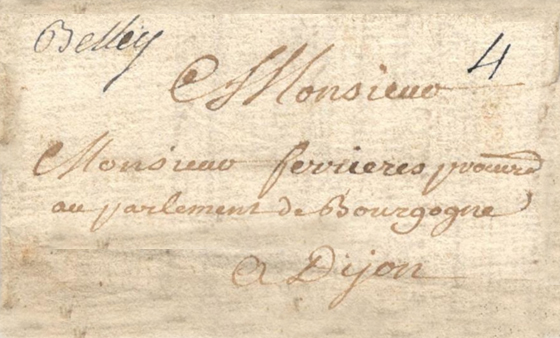 Belley
4
A Monsieur
Monsieur ferrieres procure
au parlement de Bourgogne
a Dijon